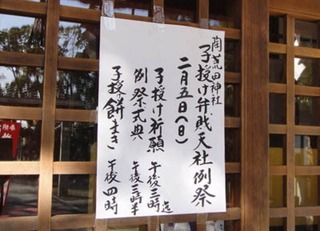 陶荒田神社
子授け弁財天社例祭
二月五日(日)
子授け祈願 午後三時迄
例祭式典 午後三時半
子授餅まき 午後四時